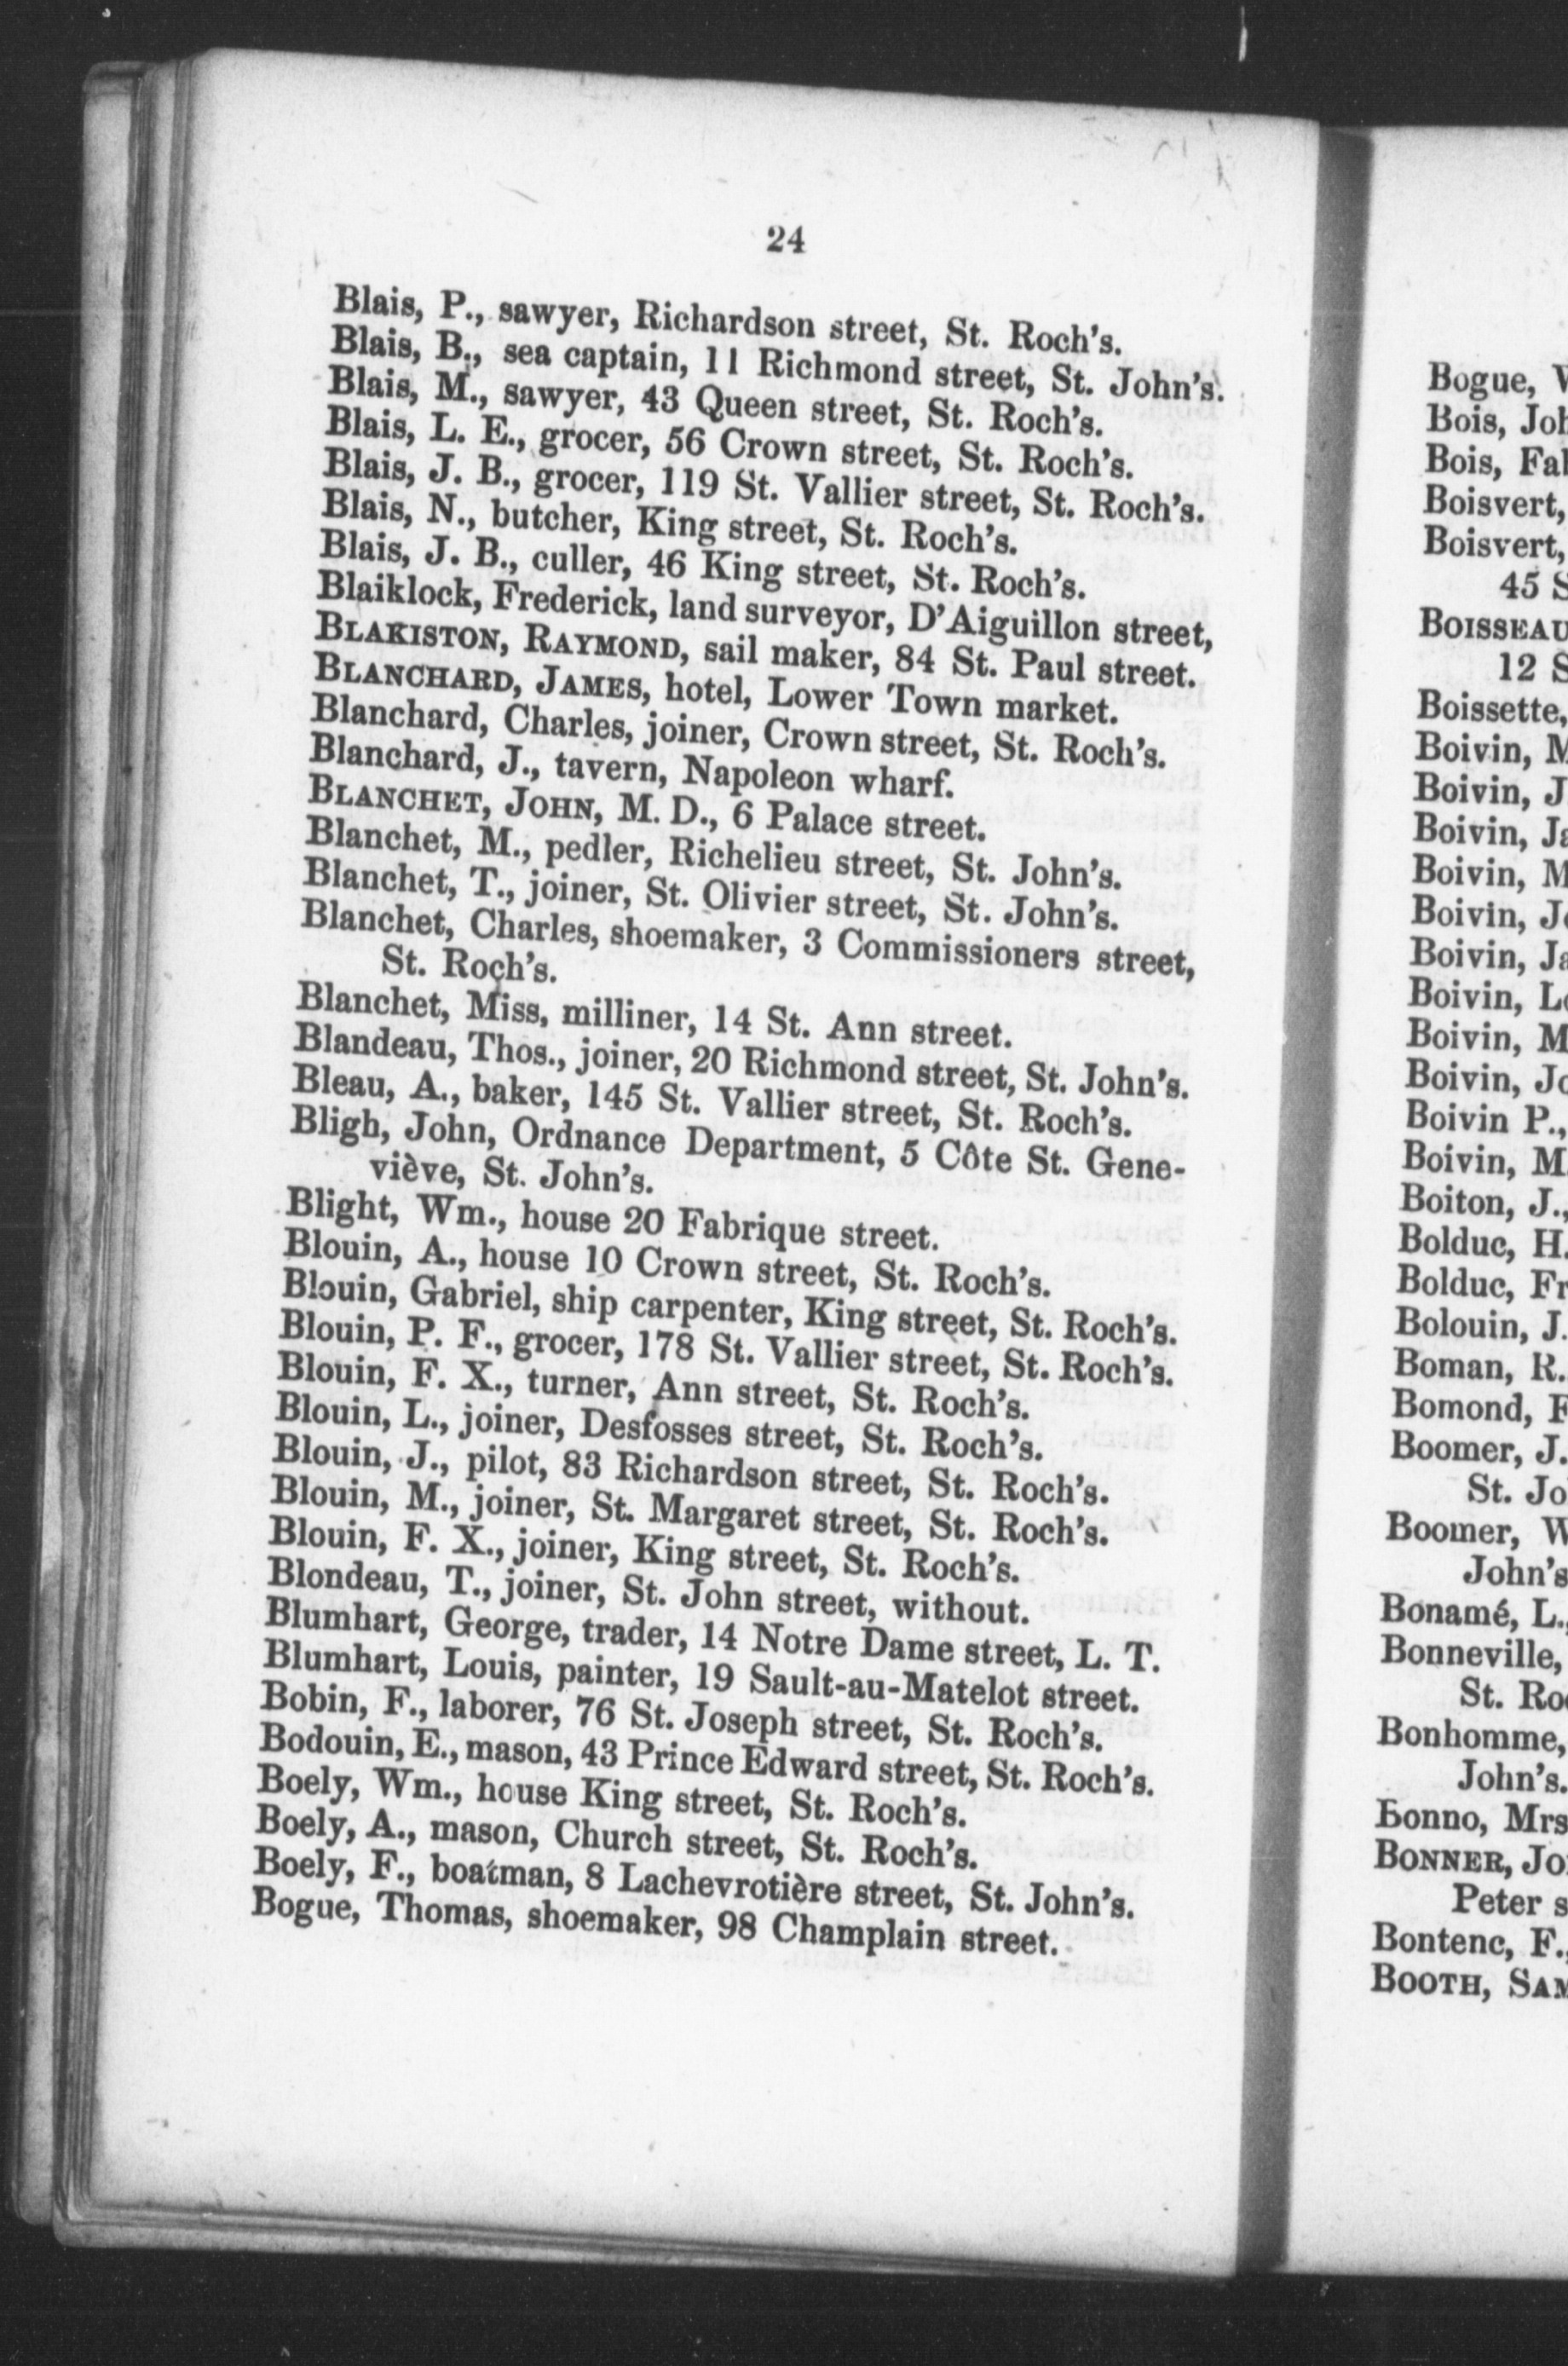 24
Blais, P., sawyer, Richardson street, St. Roch's.
Blais, B., sea captain, 11 Richmond street, St. John's.
Blais, M., sawyer, 43 Queen street, St. Roch's.
Blais, L. E., grocer, 56 Crown street, St. Roch's.
Blais, J. B., grocer, 119 St. Vallier street, St. Roch's.
Blais, N., butcher, King street, St. Roch's.
Blais, J. B., culler, 46 King street, St. Roch's.
Blaiklock, Frederick, land surveyor, D'Aiguillon street,
BLAKISTON, RAYMOND, sail maker, 84 St. Paul street.
BLANCHARD, JAMES, hotel, Lower Town market.
Blanchard, Charles, joiner, Crown street, St. Roch's.
Blanchard, J., tavern, Napoleon wharf.
BLANCHET, JOHN, M. D., 6 Palace street.
Blanchet, M., pedler, Richelieu street, St. John's.
Blanchet, T., joiner, St. Olivier street, St. John's.
Blanchet, Charles, shoemaker, 3 Commissioners street,
St. Roch's.
Blanchet, Miss, milliner, 14 St. Ann street.
Blandeau, Thos., joiner, 20 Richmond street, St. John's.
Bleau, A., baker, 145 St. Vallier street, St. Roch's.
Bligh, John, Ordnance Department, 5 Côte St. Gene-
viève, St. John's.
Blight, Wm., house 20 Fabrique street.
Blouin, A., house 10 Crown street, St. Roch's.
Blouin, Gabriel, ship carpenter, King street, St. Roch's.
Blouin, P. F., grocer, 178 St. Vallier street, St. Roch's.
Blouin, F. X., turner, Ann street, St. Roch's.
Blouin, L., joiner, Desfosses street, St. Roch's.
Blouin, J., pilot, 83 Richardson street, St. Roch's.
Blouin, M., joiner, St. Margaret street, St. Roch's.
Blouin, F. X., joiner, King street, St. Roch's.
Blondeau, T., joiner, St. John street, without.
Blumhart, George, trader, 14 Notre Dame street, L. T.
Blumhart, Louis, painter, 19 Sault-au-Matelot street.
Bobin, F., laborer, 76 St. Joseph street, St. Roch's.
Bodouin, E., mason, 43 Prince Edward street, St. Roch's.
Boely, Wm., house King street, St. Roch's.
Boely, A., mason, Church street, St. Roch's.
Boely, F., boatman, 8 Lachevrotière street, St. John's.
Bogue, Thomas, shoemaker, 98 Champlain street.
Bogue,
Bois,
Bois,
Boisvert,
Boisvert,
45
BOISSEAU
12
Boissette,
Boivin,
Boivin,
Boivin,
Boivin,
Boivin,
Boivin,
Boivin,
Boivin,
Boivin,
Boivin P.,
Boivin,
Boiton, J.,
Bolduc, H.
Bolduc,
Bolouin, J.
Boman, R.
Bomond,
Boomer, J.
St.
Boomer,
John's
Bonamé, L.,
Bonneville,
St.
Bonhomme,
John's.
Bonno, Mrs
BONNER,
Peter
Bontenc, F.,
BOOTH,